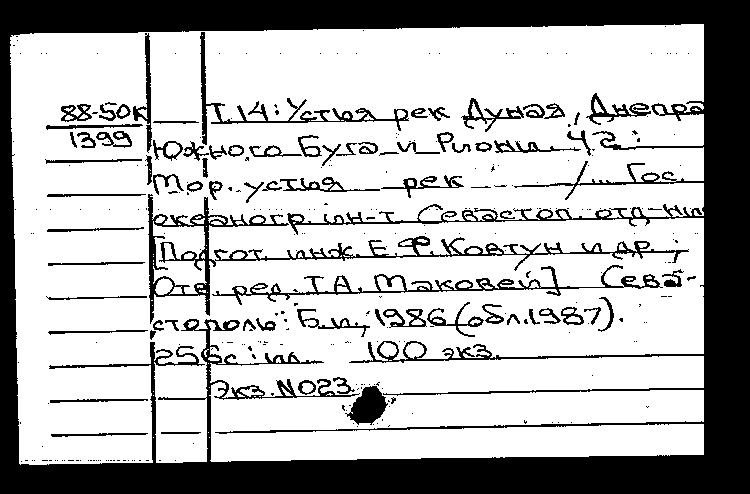 88-50к Т.14: Устья рек Дуная, Днепра
1399 Южного Буга и Риони. Ч 2:
Мор. устья рек /... Гос.
океаногр. ин-т. Севастоп. отд-ние
[Подгот. инж. Е.Ф. Ковтун и др.;
Отв. ред. Т.А. Маковей]. Сева-
стополь: Б.и., 1986 (обл. 1987).
256с: ил. 100 экз.
Экз. N023